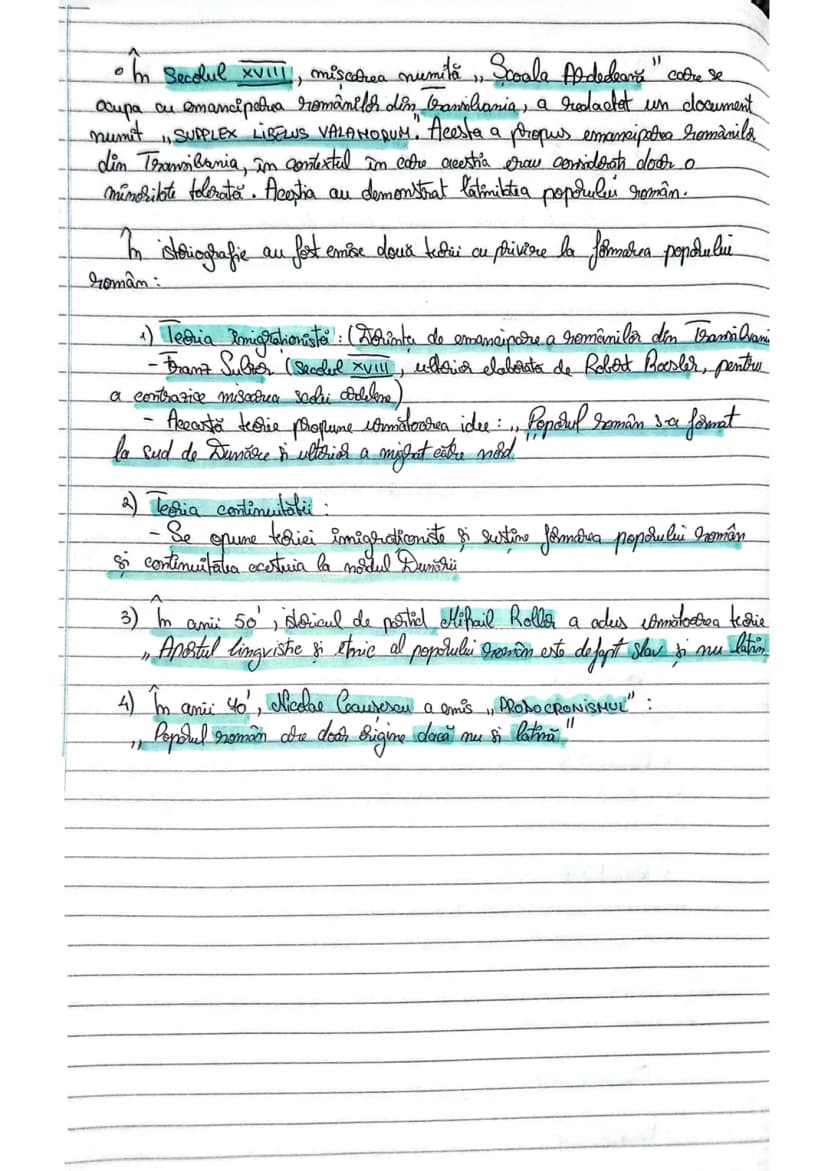 În Secolul XVIII, mișcarea numită „Școala Ardeleană" care se
ocupa cu emanciparea românilor din Transilvania, a redactat un document
numit „SUPPLEX LIBELUS VALAHORUM". Acesta a propus emanciparea românilor
din Transilvania, în contextul în care aceștia erau considerati doar o
minoritate tolerată. Aceștia au demonstrat latinitatea poporului român.
În istoriografie au fost emise două teorii cu privire la formarea poporului
român:
1) Teoria imigrationistă: (Dorința de emancipare a românilor din Transilvani
- Franz Sulzer (Secolul XVIII, ulterior elaborată de Robert Roesler, pentru
a contrazice miscarea scolii ardelene)
- Această teorie propune următoarea idee: „Poporul român s-a format
la sud de Dunăre și ulterior a migrat către nord"
2) Teoria continuitatii:
- Se opune teoriei imigrationiste și sustine formarea poporului român
și continuitatea acestuia la nordul Dunării
3) În anii 50', istoricul de partid Mihail Roller a adus următoarea teorie
„ Aportul lingvistic și etnic al poporului român este defapt slav și nu latin
4) În anii 70', Nicolae Ceausescu a emis „PROTOCRONISMUL":
„ Poporul român are doar origine dacă nu și latină"